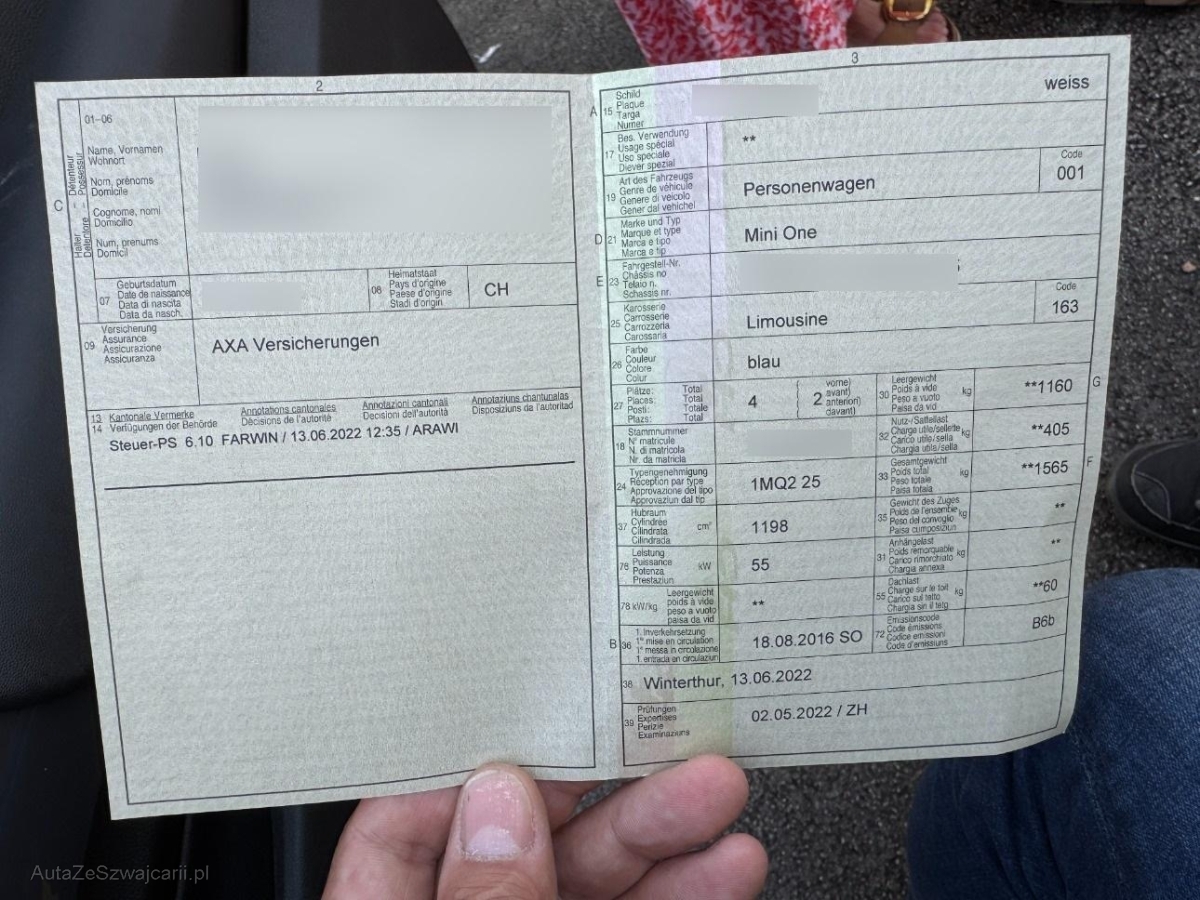 2
01-06
C
Halter Détenteur
Detentore Possessur
Name, Vornamen
Wohnort
Nom, prénoms
Domicile
Cognome, nomi
Domicilio
Num, prenums
Domicil
07
Geburtsdatum
Date de naissance
Data di nascita
Data da nasch.
08
Heimatstaat
Pays d'origine
Paese d'origine
Stadi d'origin
CH
09
Versicherung
Assurance
Assicurazione
Assicuranza
AXA Versicherungen
13 Kantonale Vermerke Annotations cantonales Annotazioni cantonali Annotaziuns chantunalas
14 Verfügungen der Behörde Décisions de l'autorité Decisioni dell'autorità Disposiziuns da l'autoritad
Steuer-PS 6.10 FARWIN / 13.06.2022 12:35 / ARAWI
3
A 15
Schild
Plaque
Targa
Numer
weiss
17
Bes. Verwendung
Usage spécial
Uso speciale
Diever spezial
**
19
Art des Fahrzeugs
Genre de véhicule
Genere di veicolo
Gener dal vehichel
Personenwagen
Code
001
D 21
Marke und Typ
Marque et type
Marca e tipo
Marca e tip
Mini One
E 23
Fahrgestell-Nr.
Châssis no
Telaio n.
Schassis nr.
25
Karosserie
Carrosserie
Carrozzeria
Carossaria
Limousine
Code
163
26
Farbe
Couleur
Colore
Colur
blau
27
Plätze: Total
Places: Total
Posti: Totale
Plazs: Total
4
2
vorne)
avant)
anteriori)
davant)
30
Leergewicht
Poids à vide
Peso a vuoto
Paisa da vid
kg
**1160
G
18
Stammnummer
N° matricule
N. di matricola
Nr. da matricla
32
Nutz-/Sattellast
Charge utile/sellette
Carico utile/sella
Chargia utile/sella
kg
**405
24
Typengenehmigung
Réception par type
Approvazione del tipo
Approvaziun dal tip
1MQ2 25
33
Gesamtgewicht
Poids total
Peso totale
Paisa totala
kg
**1565
F
37
Hubraum
Cylindrée
Cilindrata
Cilindrada
cm³
1198
35
Gewicht des Zuges
Poids de l'ensemble
Peso del convoglio
Paisa cumposiziun
kg
**
76
Leistung
Puissance
Potenza
Prestaziun
kW
55
31
Anhängelast
Poids remorquable
Carico rimorchiato
Chargia annexa
kg
**
78 kW/kg
Leergewicht
poids à vide
peso a vuoto
paisa da vid
**
55
Dachlast
Charge sur le toit
Carico sul tetto
Chargia sin il tetg
kg
**60
B 36
1. Inverkehrsetzung
1re mise en circulation
1a messa in circolazione
1. entrada en circulaziun
18.08.2016 SO
72
Emissionscode
Code émissions
Codice emissioni
Code d'emissiuns
B6b
38 Winterthur, 13.06.2022
39
Prüfungen
Expertises
Perizie
Examinaziuns
02.05.2022 / ZH
AutaZeSzwajcarii.pl